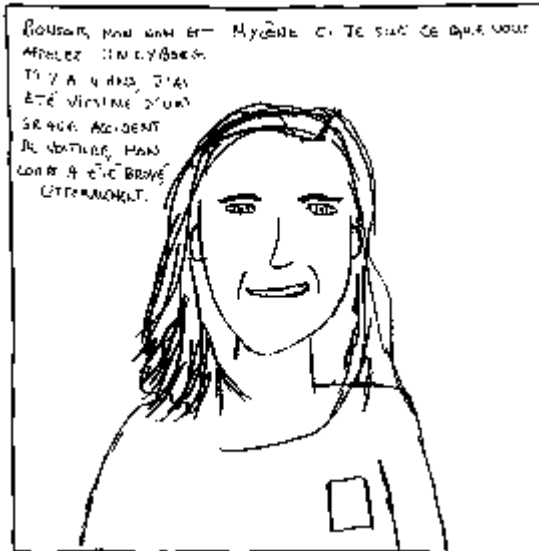 BONSOIR, MON NOM EST MYLÈNE ET JE SUIS CE QUE VOUS
APPELEZ UN CYBORG
IL Y A 4 ANS, J'AI
ÉTÉ VICTIME D'UN
GRAVE ACCIDENT
DE VOITURE, MON
CORPS A ÉTÉ BROYÉ
LITTÉRALEMENT.